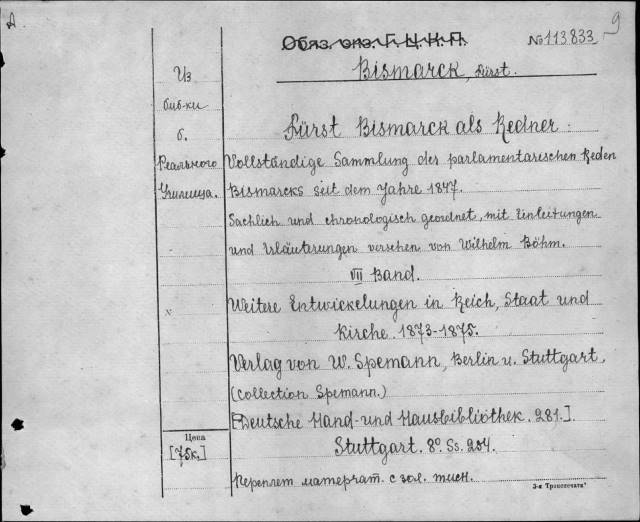 Обяз. экз. Г. Ц. К. П.
№ 113833
9
Bismarck, Fürst.
Из
биб-ки
б.
Реального
Училища.
Fürst Bismarck als Redner.
Vollständige Sammlung der parlamentarischen Reden
Bismarcks seit dem Jahre 1847.
Sachlich und chronologisch geordnet, mit Einleitungen
und Erläuterungen versehen von Wilhelm Böhm.
VII Band.
Weitere Entwickelungen in Reich, Staat und
Kirche. 1873-1875.
Verlag von W. Spemann, Berlin u. Stuttgart.
(Collection Spemann.)
[Deutsche Hand- und Hausbibliothek. 281.]
Цена
[75к.]
Stuttgart. 8º. Ss. 254.
Переплет матерчат. с зол. тисн.
3-я Транспечать